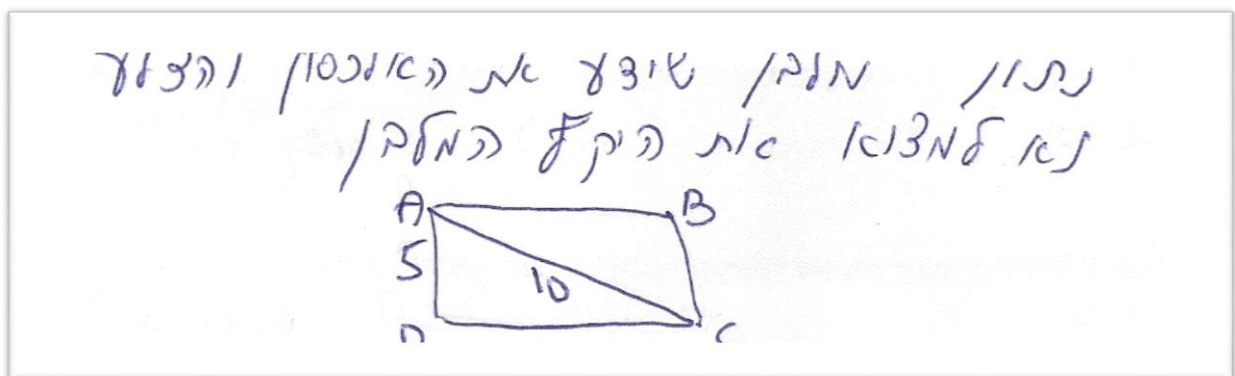 נתון מלבן שידע את האלכסון והצלע
נא למצוא את היקף המלבן
A B
5
10
D C